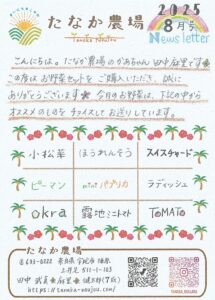 2025
8月号
News letter
たなか農場
Tanaka Noujou
こんにちは。たなか農場のかあちゃん 田中麻里です
この度はお野菜セットをご購入いただき、誠に
ありがとうございます 今月のお野菜は、下記の中から
オススメのものをチョイスしてお送りしています。
小松菜 ほうれんそう スイスチャード
ピーマン mini パプリカ ラディッシュ
okra 露地ミニトマト TOMATO
たなか農場
奈良県 宇陀市 榛原
https://tanaka-noujou.com/